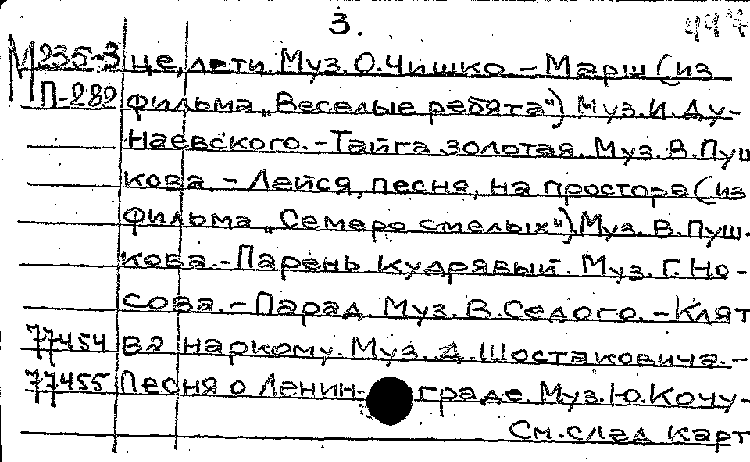 3.
М 235-3 це, лети Муз. О. Чишко. – Марш (из
П-282 фильма „Веселые ребята") Муз. И. Ду-
наевского. – Тайга золотая. Муз. В. Пуш
кова. – Лейся, песня, на просторе (из
фильма „Семеро смелых") Муз. В. Пуш-
кова. – Парень кудрявый. Муз. Г. Но-
сова. – Парад. Муз. В. Седого. – Клят
77454 ва наркому. Муз. Д. Шостаковича. –
77455 Песня о Ленин- граде. Муз. Ю. Кочу-
См. след карт